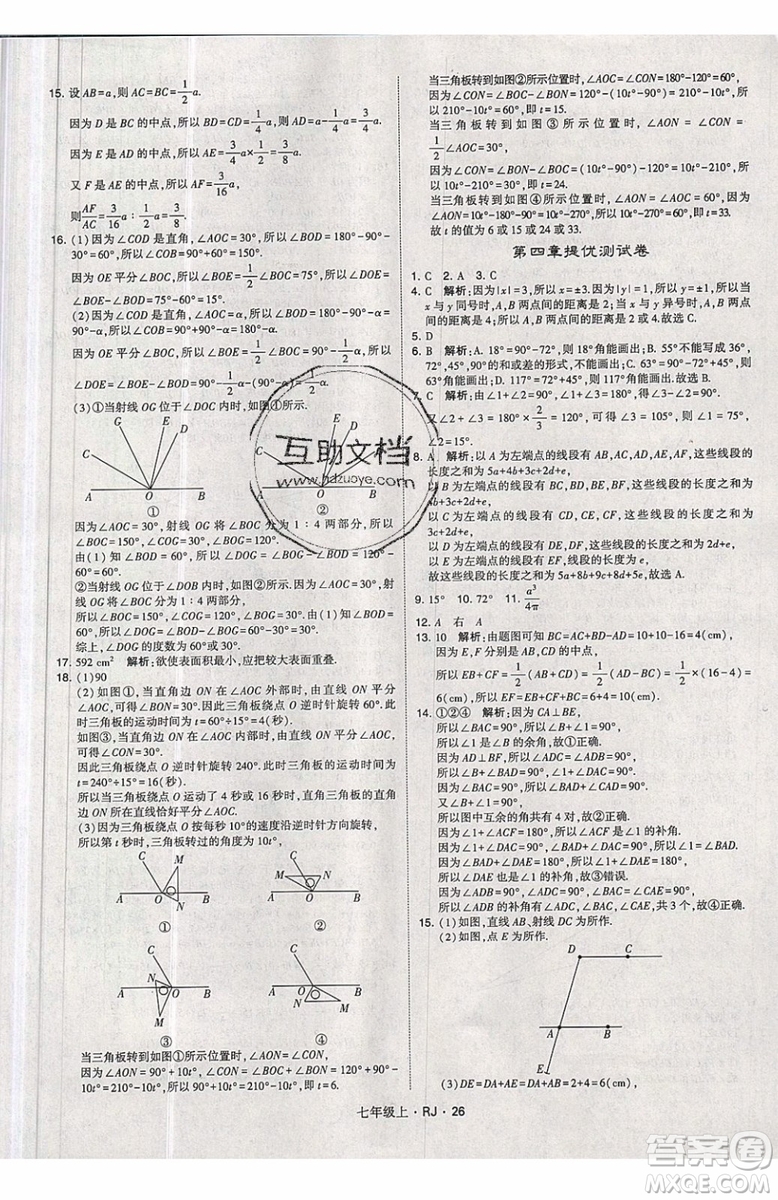 15. 设 AB=a,则 AC=BC=1/2 a.
因为 D 是 BC 的中点,所以 BD=CD=1/4 a,所以 AD=3/4 a.
因为 E 是 AD 的中点,所以 AE=3/4 a×1/2=3/8 a.
又 F 是 AE 的中点,所以 AF=3/16 a,
则 AF/AC=3/16 a:1/2 a=3/8.
16. (1)因为∠COD 是直角,∠AOC=30°,所以∠BOD=180°-90°-30°=60°,所以∠COB=
因为 OE 平分∠BOC,所以∠BOE=1/2∠BOC=75°,所以∠DOE
=∠BOE-∠BOD=75°-60°=15°.
(2)因为∠COD 是直角,∠AOC=α,
所以∠BOD=180°-90°-α=90°-α,所以∠COB=
因为 OE 平分∠BOC,所以∠BOE=1/2∠BOC=90°-1/2α,所以
∠DOE=∠BOE-∠BOD=90°-1/2α-(90°-α)=1/2α.
(3)①当射线 OG 位于∠DOC 内时,如图①所示.
G
E
D
C
A
O
B
①
E
D
G
C
A
O
B
②
因为∠AOC=30°,射线 OG 将∠BOC 分为 1:4 两部分,所以
由(1)知∠BOD=60°,所以∠DOG=∠BOG-∠BOD=120°-60°=
②当射线 OG 位于∠DOB 内时,如图②所示.
因为∠AOC=30°,射线 OG 将∠BOC 分为 1:4 两部分,
所以∠BOC=150°,∠BOG=30°.
由(1)知∠BOD=60°,所以∠DOG=30°.
综上,∠DOG 的度数是 60°或 30°.
17. 592 cm² 解析:欲使表面积最小,应把较大表面重叠.
18. (1)90
(2)如图①,当直角边 ON 在∠AOC 外部时,由 OD 平分
∠AOC,可得∠BON=30°.因此三角板绕点 O 逆时针旋转 60°.
此时三角板的运动时间为 t=60°÷15°=4(秒).
如图③,当直角边 ON 在∠AOC 内部时,由 ON 平分∠AOC,可
得∠CON=30°.
因此三角板绕点 O 逆时针旋转 240°.此时三角板的运动时间为
t=240°÷15°=16(秒).
所以当三角板绕点 O 运动了 4 秒或 16 秒时,直角边 ON 所在直
线恰好平分∠AOC.
(3)因为三角板绕点 O 按每秒 10°的速度沿逆时针方向旋转,
所以第 t 秒时,三角板转过的角度为 10t°,
C
M
A
O
B
N
①
C
M
N
A
O
B
②
C
N
A
O
B
M
③
C
A
O
B
N
M
④
当三角板转到如图①所示位置时,∠AON=∠CON.
因为∠AON=90°+10t°,∠CON=∠BOC+∠BON=120°+90°
-10t°=210°-10t°,所以 90°+10t°=210°-10t°,即 t=6;
当三角板转到如图②所示位置时,∠AOC=∠CON=180°-120°=60°,
因为∠CON=∠BOC-∠BON=120°-(10t°-90°)=210°-10t°,所以
210°-10t°=60°,即 t=15;
当三角板转到如图③所示位置时,∠AON=∠CON=
1/2∠AOC=30°,
因为∠CON=∠BON-∠BOC=(10t°-90°)-120°=10t°-210°,
所以 10t°-210°=30°,即 t=24;
当三角板转到如图④所示位置时,∠AON=∠AOC=60°,
因为∠AON=10t°-180°-90°=10t°-270°,所以 10t°-270°=60°,即 t=33.
故 t 的值为 6 或 15 或 24 或 33.
第四章提优测试卷
1. C 2. A 3. C
4. C 解析:因为|x|=3,所以 x=±3.因为|y|=1,所以 y=±1.所以当
x 与 y 同号时,A,B 两点间的距离是 2;当 x 与 y 异号时,A,B 两点
间的距离是 4;所以 A,B 两点间的距离是 2 或 4,故选 C.
5. D
6. B 解析:A. 18°=90°-72°,18°角能画出;B. 55°不能写成 36°,
72°,45°,90°的和或差的形式,不能画出;C. 63°=90°-72°+45°,
63°角能画出;D. 117°=72°+45°,117°角能画出.故选 B.
7. C 解析:因为∠1+∠2=90°,∠2+∠3=90°,所以∠1=∠3.
又∠2+∠3=90°,∠2=90°×2/3=60°,∠3=90°-60°=30°,所以
∠1=30°,故选 C.
8. A 解析:以 A 为左端点的线段有 AB,AC,AD,AE,AF,这些线段的
长度之和为 5a+4b+3c+2d+e,
以 B 为左端点的线段有 BC,BD,BE,BF,这些线段的长度之和为
4b+3c+2d+e,
以 C 为左端点的线段有 CD,CE,CF,这些线段的长度之和为
3c+2d+e,
以 D 为左端点的线段有 DE,DF,这些线段的长度之和为 2d+e,
以 E 为左端点的线段有 EF,线段的长度为 e,
故这些线段的长度之和为 5a+8b+9c+8d+5e,故选 A.
9. 15° 10. 72° 11. a³/4π
12. A 右 A
13. 10 解析:由题图可知 BC=AC+BD-AD=10-6=4(cm),
所以 EB+CF=1/2AB+1/2CD=1/2(AB+CD)=1/2(16-4)=
6(cm),所以 EF=EB+CF+BC=6+4=10(cm).
14. ①②④ 解析:因为 CA⊥BE,
所以∠BAC=90°,所以∠BAD+∠1=90°,
所以∠1 是∠BAD 的余角,故①正确.
因为 AD⊥BF,所以∠ADB=∠ADC=90°,
所以∠B+∠BAD=90°,∠ACB+∠1=90°,
又∠B+∠ACB=90°,
所以图中互余的角共有 4 对,故②正确.
因为∠1+∠ACF=180°,所以∠1 的补角是
因为∠BAD+∠DAE=180°,所以∠BAD 的补角是
所以∠BAD+∠1=90°,故③错误.
因为∠BAD+∠DAC=90°,∠BAC=90°,∠CAE=90°,
所以∠ADB 的补角有∠ADC,∠BAC,∠CAE,共 3 个,故④正确.
15. (1)如图,直线 AB、射线 DC 为所作.
(2)如图,点 E 为所作.
D
C
A
B
E
(3)DE=DA+AE=DA+AB+AE=2+4=6(cm).
七年级上·RJ·26
互助文档
www.hdzuoye.com
答案圈
MXQE.COM